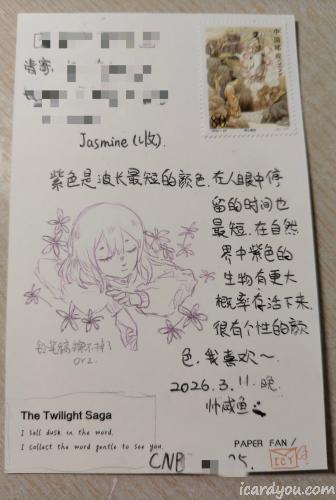 请寄:
Jasmine (收)
紫色是波长最短的颜色.在人眼中停
留的时间也
最短.在自然
界中紫色的
生物有更大
概率存活下来.
很有个性的颜
色.我喜欢～
铅笔稿擦不掉了
orz.
2026.3.11.晚
帅咸鱼
中国邮政
80分
The Twilight Saga
I sell dusk in the word,
I collect the word gentle to see you.
PAPER FAN /
CNB 25.
ICY
icardyou.com